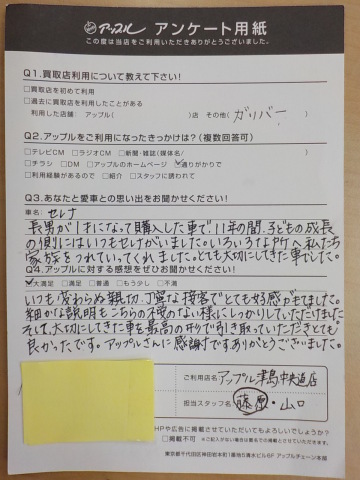 アップル アンケート用紙
この度は当店をご利用いただきありがとうございました。
Q1.買取店利用について教えて下さい!
□買取店を初めて利用
□過去に買取店を利用したことがある
利用した店舗: アップル( )店 その他( ガリバー )
Q2.アップルをご利用になったきっかけは?(複数回答可)
□テレビCM □ラジオCM □新聞・雑誌(媒体名/ )
□チラシ □DM □アップルのホームページ ☑通りがかりで
□利用経験があるので □紹介 □スタッフに誘われて
Q3.あなたと愛車との思い出をお聞かせください!
車名: セレナ
長男が1才になって購入した車で11年の間、子どもの成長
の側にはいつもセレナがいました。いろいろな所へ私たち
家族をつれていってくれました。とても大切にしてきた車でした。
Q4.アップルに対する感想をぜひお聞かせください!
☑大満足 □満足 □普通 □もう少し □不満
いつも変わらぬ親切、丁寧な接客でとても好感がもてました。
細かな説明もこちらの不安のない様にしっかりしていただけました
そして、大切にしてきた車を最高の形で引き取っていただきとても
良かったです。アップルさんに感謝ですありがとうございました。
ご利用店名 アップル津島中央道店
担当スタッフ名 藤原・山口
HPや広告に掲載させていただいてもよろしいでしょうか?
□掲載不可 ※ご記入がない場合は匿名での掲載とさせていただきます。
東京都千代田区神田岩本町1番地5清水ビル6F アップルチェーン本部